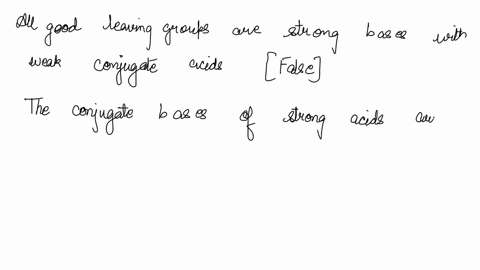 All good leaving groups are strong bases with
weak conjugate acids [False]
The conjugate bases of strong acids are